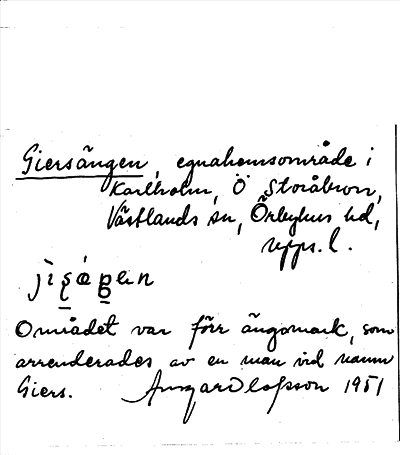 Giersängen, egnahemsområde i
Karlholm, Ö Storåbron,
Västlands sn, Örbyhus hd,
Upps. l.
Området var förr ängsmark, som
arrenderades av en man vid namn
Giers. Ansgar Olofsson 1951